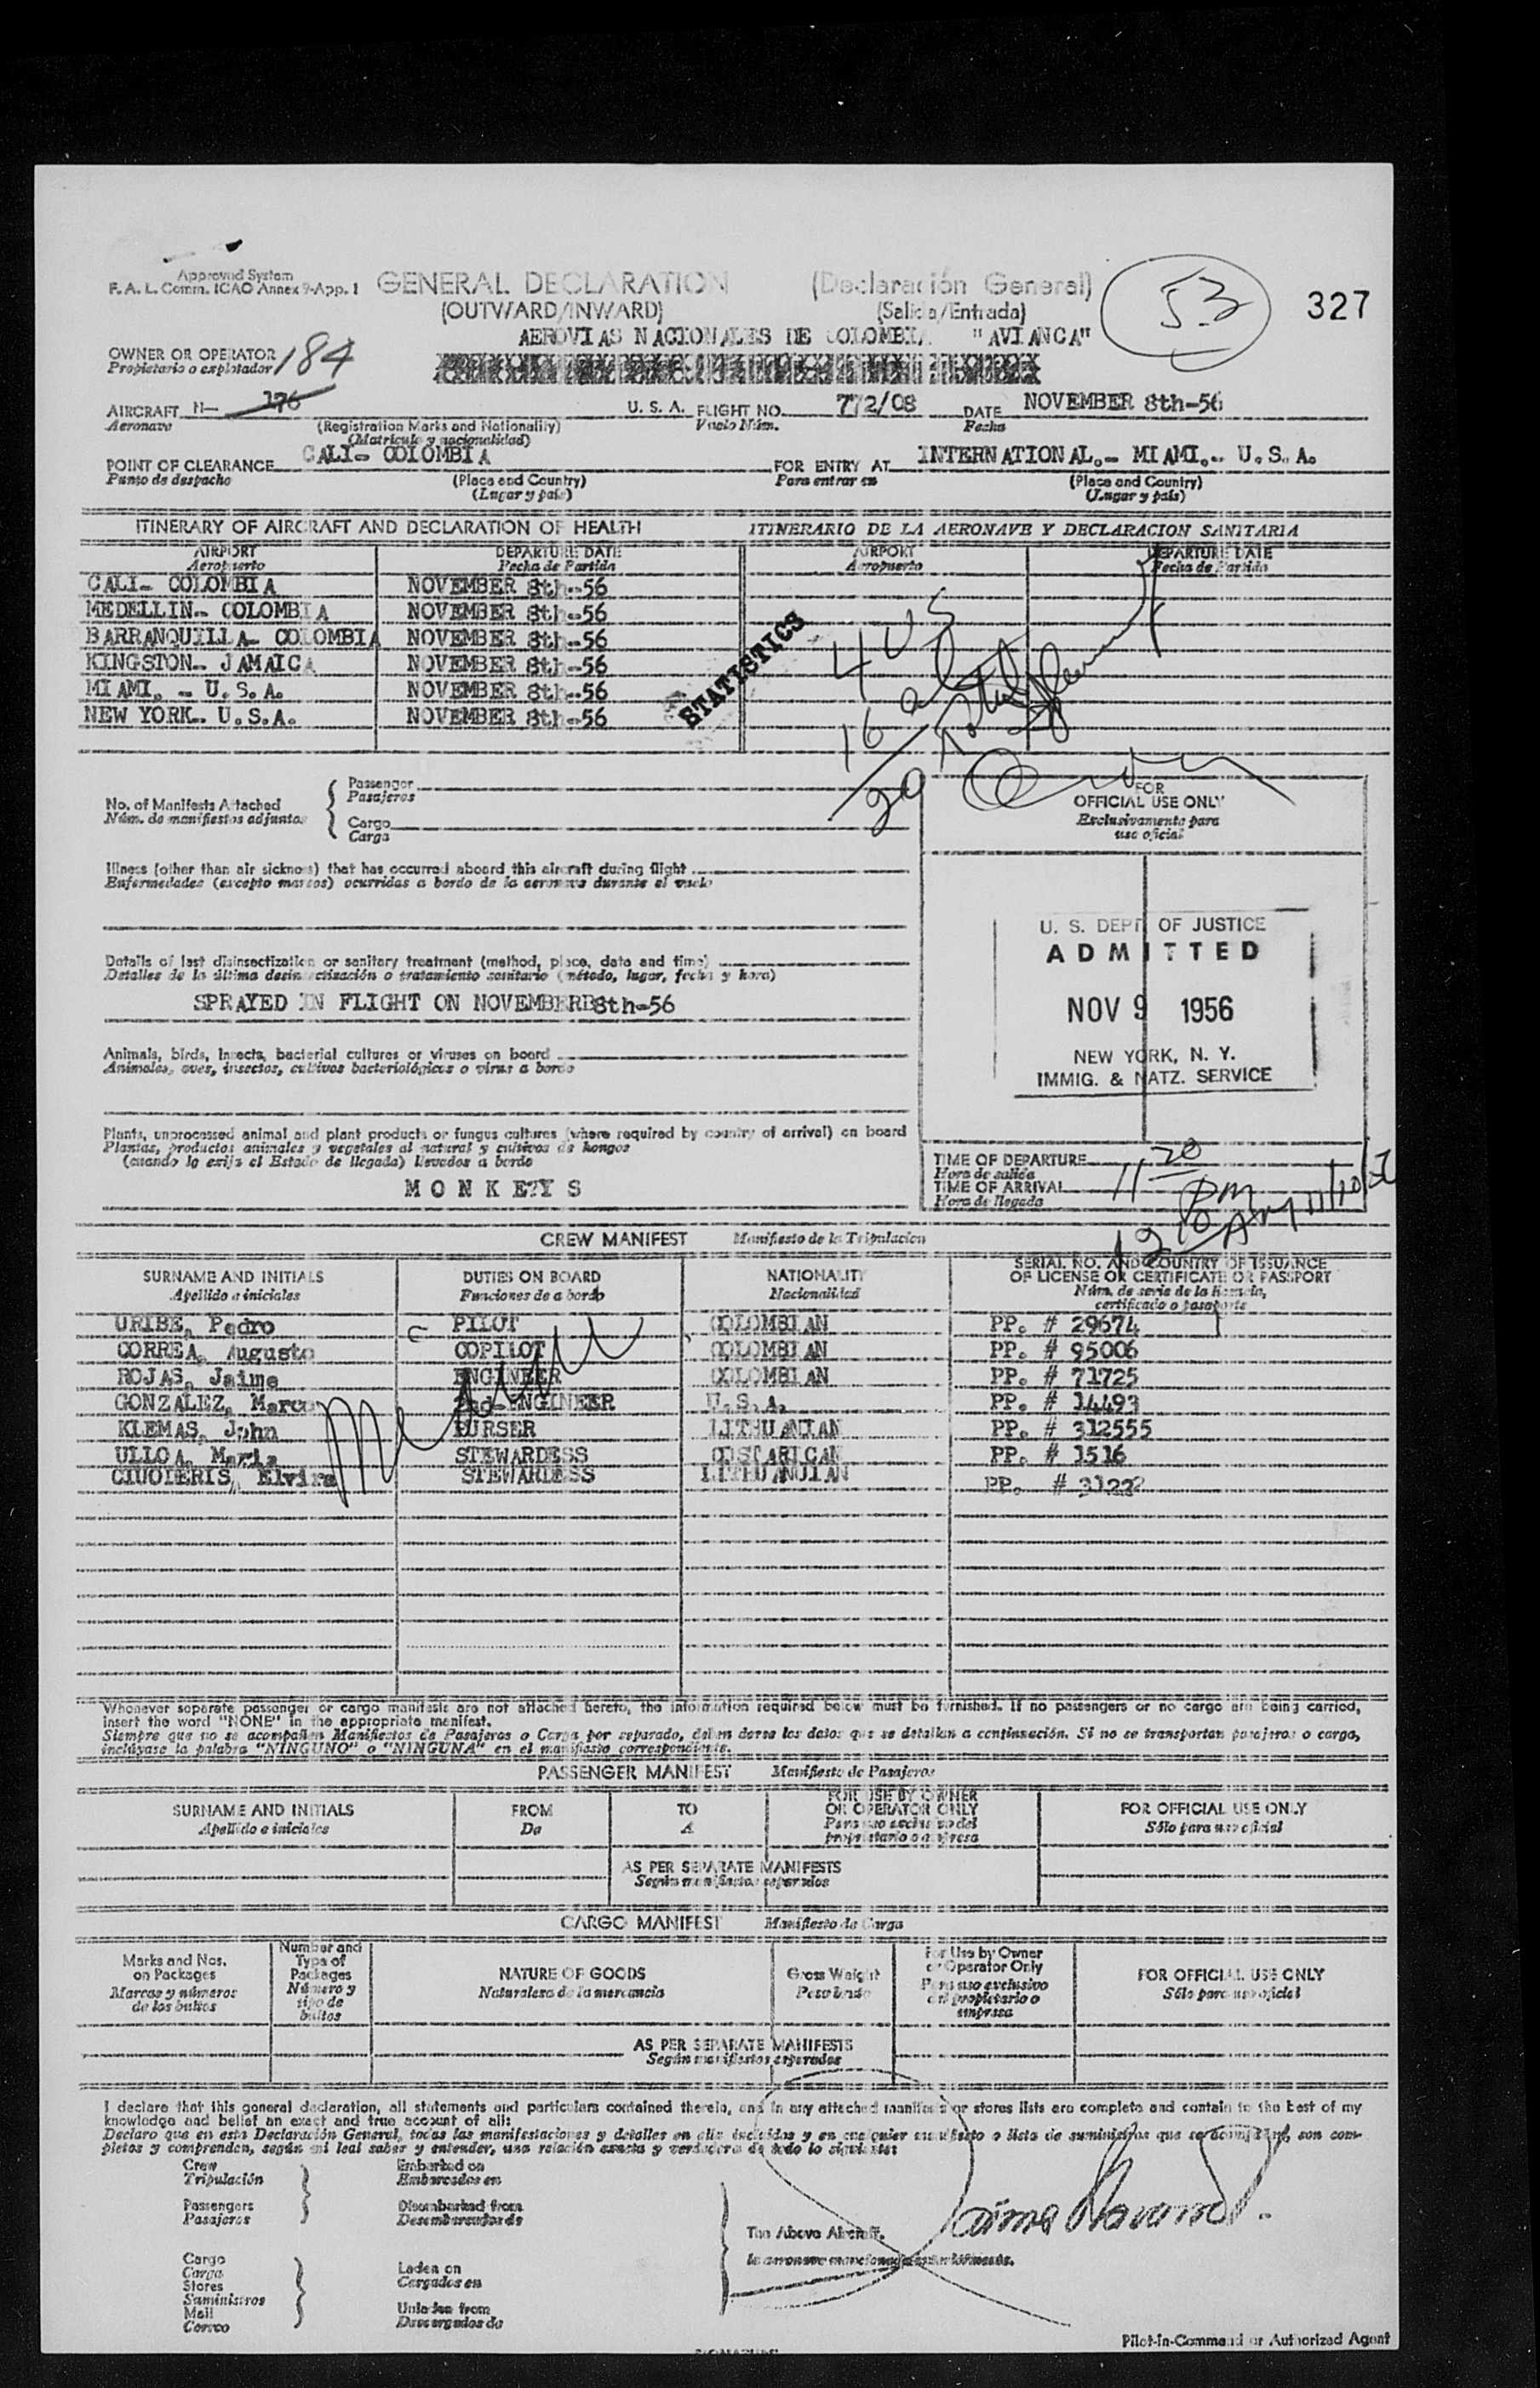 Approved System
F. A. L. Comm. ICAO Annex 9-App. 1
GENERAL DECLARATION (Declaración General)
(OUTWARD/INWARD) (Salida/Entrada)
53
327
AEROVIAS NACIONALES DE COLOMBIA "AVIANCA"
OWNER OR OPERATOR 184
Propietario o explotador
AIRCRAFT N- 176 U. S. A. FLIGHT NO. 772/08 DATE NOVEMBER 8th-56
Aeronave (Registration Marks and Nationality) Vuelo Núm. Fecha
(Matricula y nacionalidad)
POINT OF CLEARANCE CALI- COLOMBIA FOR ENTRY AT INTERNATIONAL.- MIAMI.- U.S.A.
Punto de despacho (Place and Country) Para entrar en (Place and Country)
(Lugar y país) (Lugar y país)
ITINERARY OF AIRCRAFT AND DECLARATION OF HEALTH ITINERARIO DE LA AERONAVE Y DECLARACION SANITARIA
AIRPORT DEPARTURE DATE AIRPORT DEPARTURE DATE
Aeropuerto Fecha de Partida Aeropuerto Fecha de Partida
CALI- COLOMBIA NOVEMBER 8th-56
MEDELLIN- COLOMBIA NOVEMBER 8th-56
BARRANQUILLA- COLOMBIA NOVEMBER 8th-56
KINGSTON- JAMAICA NOVEMBER 8th-56
MIAMI, - U.S.A. NOVEMBER 8th-56
NEW YORK- U.S.A. NOVEMBER 8th-56
STATISTICS
4 US
16 al
20
No. of Manifests Attached
Núm. de manifiestos adjuntos
Passenger
Pasajeros
Cargo
Carga
FOR
OFFICIAL USE ONLY
Exclusivamente para
uso oficial
Illness (other than air sickness) that has occurred aboard this aircraft during flight
Enfermedades (excepto mareos) ocurridas a bordo de la aeronave durante el vuelo
U. S. DEPT. OF JUSTICE
ADMITTED
NOV 9 1956
NEW YORK, N. Y.
IMMIG. & NATZ. SERVICE
Details of last disinsectization or sanitary treatment (method, place, date and time)
Detalles de la última desinsectización o tratamiento sanitario (método, lugar, fecha y hora)
SPRAYED IN FLIGHT ON NOVEMBERB8th-56
Animals, birds, insects, bacterial cultures or viruses on board
Animales, aves, insectos, cultivos bacteriológicos o virus a bordo
Plants, unprocessed animal and plant products or fungus cultures (where required by country of arrival) on board
Plantas, productos animales y vegetales al natural y cultivos de hongos
(cuando lo exija el Estado de llegada) llevados a bordo
MONKEYS
TIME OF DEPARTURE 11 20 pm
Hora de salida
TIME OF ARRIVAL 12 10 AM 11/10/56
Hora de llegada
CREW MANIFEST Manifiesto de la Tripulacion
SURNAME AND INITIALS DUTIES ON BOARD NATIONALITY SERIAL NO. AND COUNTRY OF ISSUANCE
Apellido e iniciales Funciones de a bordo Nacionalidad OF LICENSE OR CERTIFICATE OR PASSPORT
Núm. de serie de la licencia,
certificado o pasaporte
URIBE, Pedro PILOT COLOMBIAN PP. # 29674
CORREA, Augusto COPILOT COLOMBIAN PP. # 95006
ROJAS, Jaime ENGINEER COLOMBIAN PP. # 71725
GONZALEZ, Marco 2nd-ENGINEER U.S.A. PP. # 14493
KLEMAS, John PURSER LITHUANIAN PP. # 312555
ULLOA, Maria STEWARDESS COSTARICAN PP. # 1516
CIUOIERIS, Elvira STEWARDESS LITHUANUIAN PP. # 3122
Whenever separate passenger or cargo manifests are not attached hereto, the information required below must be furnished. If no passengers or no cargo are being carried,
insert the word "NONE" in the appropriate manifest.
Siempre que no se acompañen Manifiestos de Pasajeros o Carga por separado, deben darse los datos que se detallan a continuación. Si no se transportan pasajeros o carga,
inclúyase la palabra "NINGUNO" o "NINGUNA" en el manifiesto correspondiente.
PASSENGER MANIFEST Manifiesto de Pasajeros
SURNAME AND INITIALS FROM TO FOR USE BY OWNER FOR OFFICIAL USE ONLY
Apellido e iniciales De A OR OPERATOR ONLY Sólo para uso oficial
Para uso exclusivo del
propietario o empresa
AS PER SEPARATE MANIFESTS
Según manifiestos separados
CARGO MANIFEST Manifiesto de Carga
Marks and Nos.
on Packages
Marcas y números
de los bultos
Number and
Type of
Packages
Número y
tipo de
bultos
NATURE OF GOODS
Naturaleza de la mercancia
Gross Weight
Peso bruto
For Use by Owner
or Operator Only
Para uso exclusivo
del propietario o
empresa
FOR OFFICIAL USE ONLY
Sólo para uso oficial
AS PER SEPARATE MANIFESTS
Según manifiestos separados
I declare that this general declaration, all statements and particulars contained therein, and in any attached manifests or stores lists are complete and contain to the best of my
knowledge and belief an exact and true account of all:
Declaro que en esta Declaración General, todas las manifestaciones y detalles en ella incluidas y en cualquier manifiesto o lista de suministros que se acompañan, son com-
pletos y comprenden, según mi leal saber y entender, una relación exacta y verdadera de todo lo siguiente:
Crew
Tripulación
Passengers
Pasajeros
Embarked on
Embarcados en
Disembarked from
Desembarcados de
Cargo
Carga
Stores
Suministros
Mail
Correo
Laden on
Cargados en
Unladen from
Descargados de
The Above Aircraft.
Pilot-in-Command or Authorized Agent